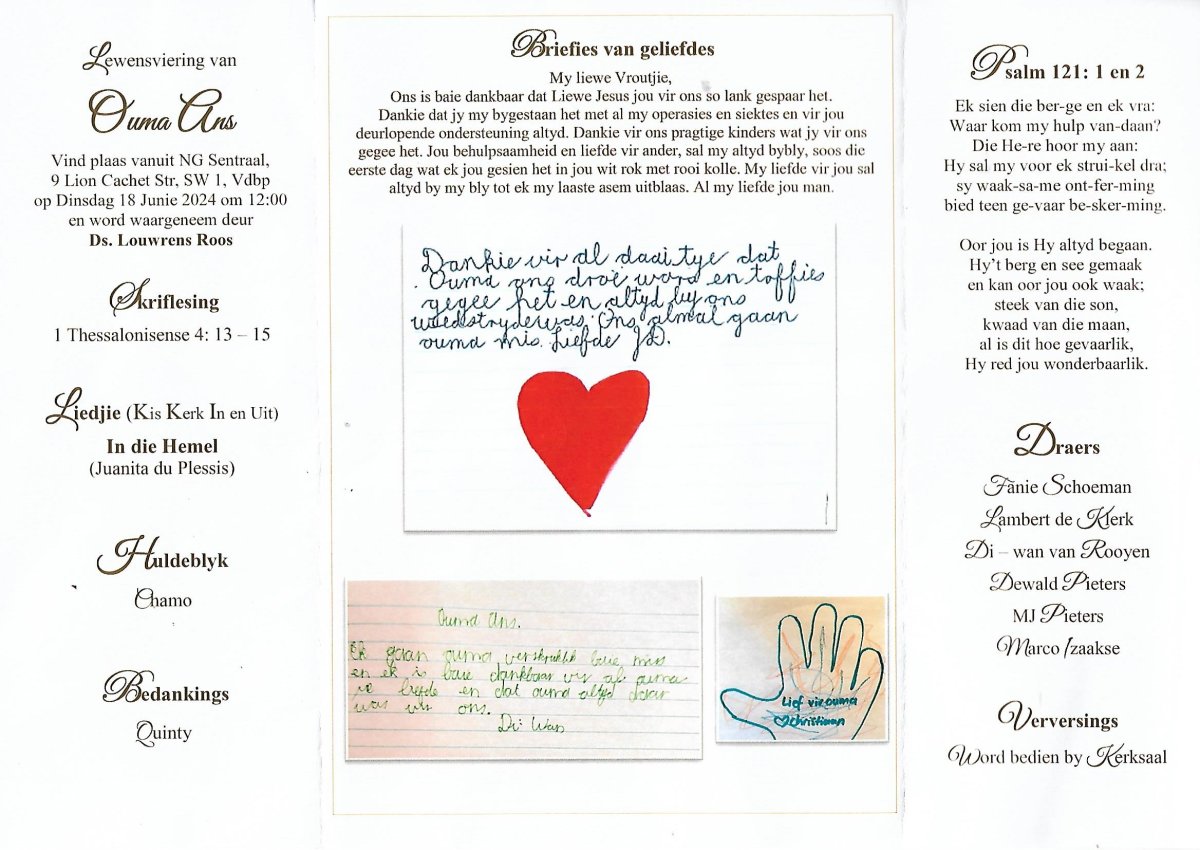 Lewensviering van
Ouma Ans
Vind plaas vanuit NG Sentraal,
9 Lion Cachet Str, SW 1, Vdbp
op Dinsdag 18 Junie 2024 om 12:00
en word waargeneem deur
Ds. Louwrens Roos
Skriflesing
1 Thessalonisense 4: 13 – 15
Liedjie (Kis Kerk In en Uit)
In die Hemel
(Juanita du Plessis)
Huldeblyk
Chamo
Bedankings
Quinty
Briefies van geliefdes
My liewe Vroutjie,
Ons is baie dankbaar dat Liewe Jesus jou vir ons so lank gespaar het.
Dankie dat jy my bygestaan het met al my operasies en siektes en vir jou
deurlopende ondersteuning altyd. Dankie vir ons pragtige kinders wat jy vir ons
gegee het. Jou behulpsaamheid en liefde vir ander, sal my altyd bybly, soos die
eerste dag wat ek jou gesien het in jou wit rok met rooi kolle. My liefde vir jou sal
altyd by my bly tot ek my laaste asem uitblaas. Al my liefde jou man.
Dankie vir al daai tye dat
Ouma ons droë word en toffies
gegee het en altyd by ons
was. Ons almal gaan
ouma mis. Liefde JD.
Ouma Ans.
Ek gaan ouma verskriklik baie mis
en ek is baie dankbaar vir al ouma
se liefde en dat ouma altyd daar
was vir ons.
Di Wan
Lief vir ouma
Christiaan
Psalm 121: 1 en 2
Ek sien die ber-ge en ek vra:
Waar kom my hulp van-daan?
Die He-re hoor my aan:
Hy sal my voor ek strui-kel dra;
sy waak-sa-me ont-fer-ming
bied teen ge-vaar be-sker-ming.
Oor jou is Hy altyd begaan.
Hy't berg en see gemaak
en kan oor jou ook waak;
steek van die son,
kwaad van die maan,
al is dit hoe gevaarlik,
Hy red jou wonderbaarlik.
Draers
Fanie Schoeman
Lambert de Klerk
Di – wan van Rooyen
Dewald Pieters
MJ Pieters
Marco Izaakse
Verversings
Word bedien by Kerksaal